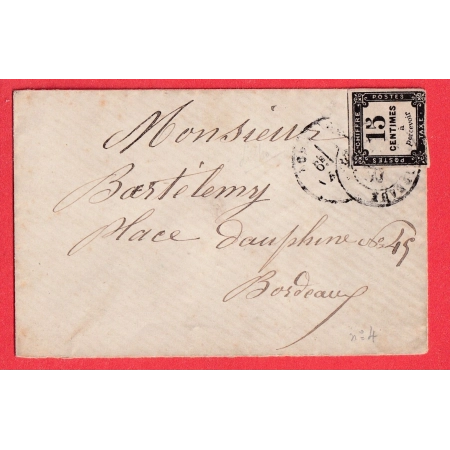 POSTES
CHIFFRE
15
CENTIMES
à
Percevoir
TAXE
POSTES
Monsieur
Bartélemy
Place dauphine No 45
Bordeaux
n=4